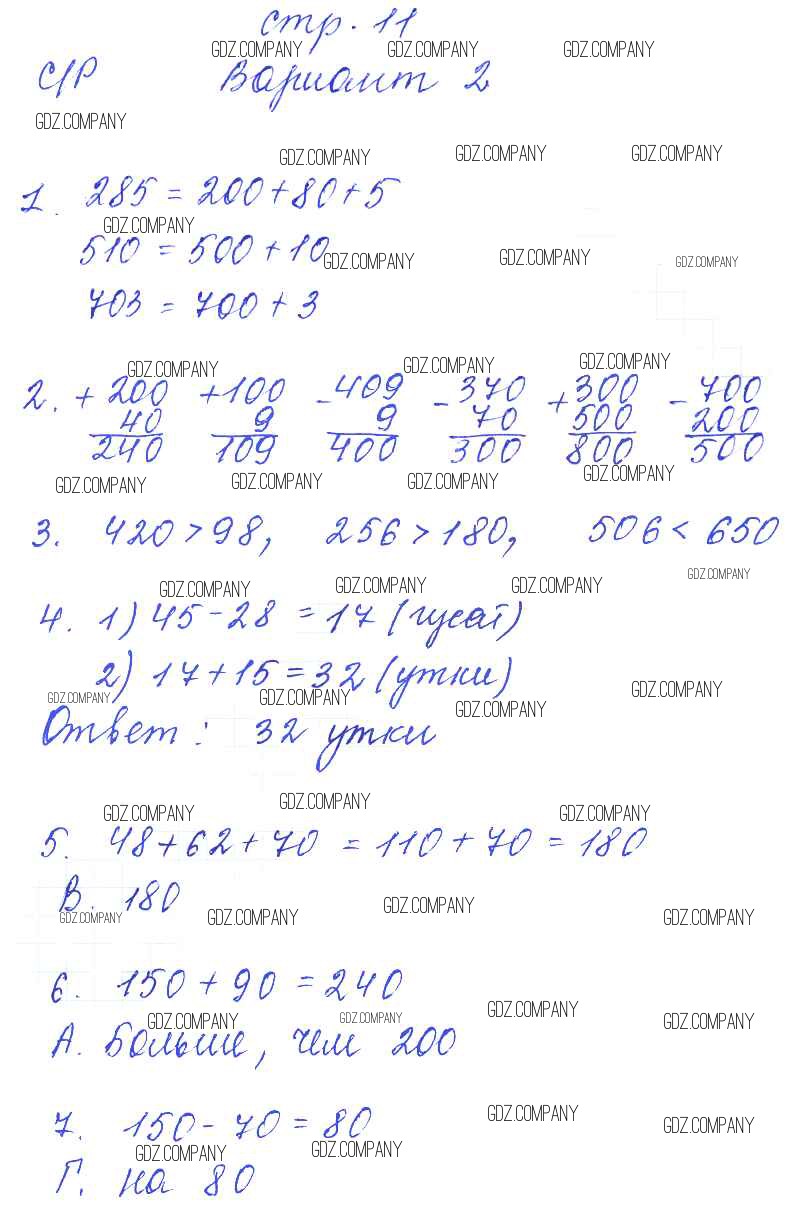 стр. 11
GDZ.COMPANY GDZ.COMPANY GDZ.COMPANY
С/Р Вариант 2
GDZ.COMPANY
GDZ.COMPANY GDZ.COMPANY GDZ.COMPANY
1. 285 = 200 + 80 + 5
GDZ.COMPANY
510 = 500 + 10
GDZ.COMPANY GDZ.COMPANY GDZ.COMPANY
703 = 700 + 3
GDZ.COMPANY GDZ.COMPANY GDZ.COMPANY
2. + 200 + 100 - 409 - 370 + 300 - 700
40 9 9 70 500 200
240 109 400 300 800 500
GDZ.COMPANY GDZ.COMPANY GDZ.COMPANY GDZ.COMPANY
3. 420 > 98, 256 > 180, 506 < 650
GDZ.COMPANY
GDZ.COMPANY GDZ.COMPANY GDZ.COMPANY
4. 1) 45 - 28 = 17 (гусат)
2) 17 + 15 = 32 (утки)
GDZ.COMPANY GDZ.COMPANY GDZ.COMPANY GDZ.COMPANY
Ответ: 32 утки
GDZ.COMPANY GDZ.COMPANY GDZ.COMPANY
5. 48 + 62 + 70 = 110 + 70 = 180
В. 180
GDZ.COMPANY GDZ.COMPANY GDZ.COMPANY GDZ.COMPANY
6. 150 + 90 = 240
GDZ.COMPANY GDZ.COMPANY GDZ.COMPANY GDZ.COMPANY
А. Больше, чем 200
7. 150 - 70 = 80
GDZ.COMPANY GDZ.COMPANY GDZ.COMPANY GDZ.COMPANY
Г. на 80